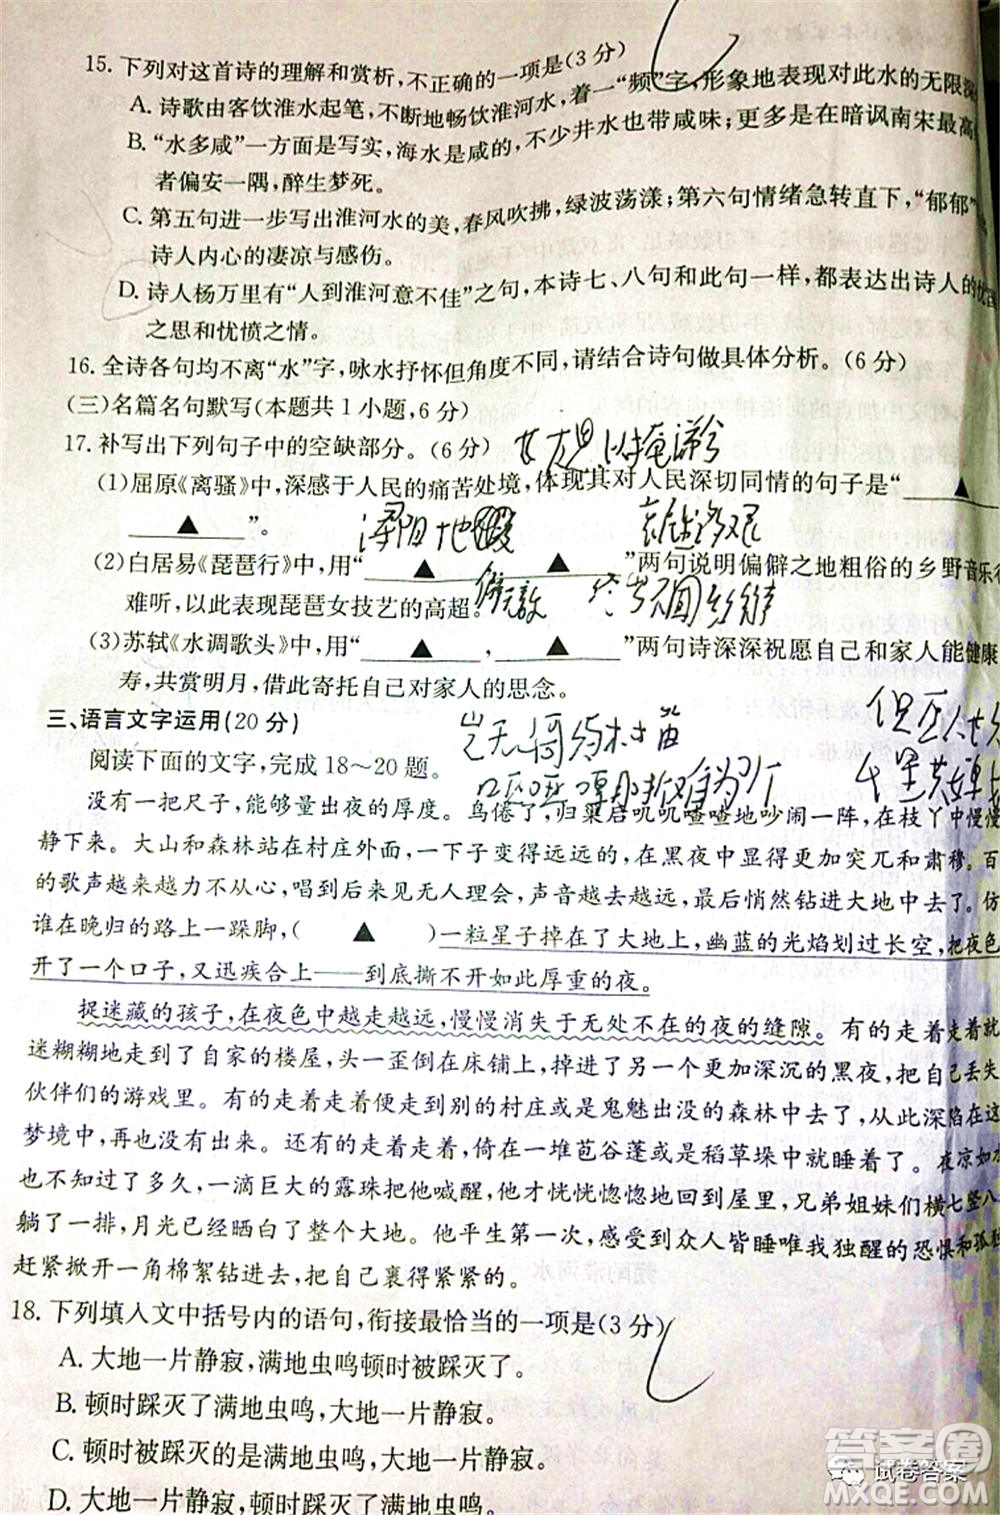 15. 下列对这首诗的理解和赏析,不正确的一项是(3分)
A. 诗歌由客饮淮水起笔,不断地畅饮淮河水,着一“频”字,形象地表现对此水的无限深
B. “水多咸”一方面是写实,海水是咸的,不少井水也带咸味;更多是在暗讽南宋最高
者偏安一隅,醉生梦死。
C. 第五句进一步写出淮河水的美,春风吹拂,绿波荡漾;第六句情绪急转直下,“郁郁”
诗人内心的凄凉与感伤。
D. 诗人杨万里有“人到淮河意不佳”之句,本诗七、八句和此句一样,都表达出诗人的忧
之思和忧愤之情。
16. 全诗各句均不离“水”字,咏水抒怀但角度不同,请结合诗句做具体分析。(6分)
(三)名篇名句默写(本题共1小题,6分)
17. 补写出下列句子中的空缺部分。(6分)
长太息以掩涕兮
(1)屈原《离骚》中,深感于人民的痛苦处境,体现其对人民深切同情的句子是“ ▲
▲ ”。
浔阳地僻
(2)白居易《琵琶行》中,用“ ▲ , ▲ ”两句说明偏僻之地粗俗的乡野音乐
难听,以此表现琵琶女技艺的高超。
终岁不闻丝竹声
(3)苏轼《水调歌头》中,用“ ▲ , ▲ ”两句诗深深祝愿自己和家人能健康
寿,共赏明月,借此寄托自己对家人的思念。
三、语言文字运用(20分)
岂无 与村笛
阅读下面的文字,完成18~20题。
没有一把尺子,能够量出夜的厚度。鸟倦了,归巢后叽叽喳喳地吵闹一阵,在枝丫中慢慢
静下来。大山和森林站在村庄外面,一下子变得远远的,在黑夜中显得更加突兀和肃穆。百
的歌声越来越力不从心,唱到后来见无人理会,声音越去越远,最后悄然钻进大地中去了。仿
谁在晚归的路上一跺脚,( ▲ )一粒星子掉在了大地上,幽蓝的光焰划过长空,把夜色
开了一个口子,又迅疾合上——到底撕不开如此厚重的夜。
捉迷藏的孩子,在夜色中越走越远,慢慢消失于无处不在的夜的缝隙。有的走着走着就
迷糊糊地走到了自家的楼屋,头一歪倒在床铺上,掉进了更加深沉的黑夜,把自己丢失
伙伴们的游戏里。有的走着走着便走到别的村庄或是鬼魅出没的森林中去了,从此深陷在这
梦境中,再也没有出来。还有的走着走着,倚在一堆苞谷蓬或是稻草垛中就睡着了。夜凉如水
也不知过了多久,一滴巨大的露珠把他喊醒,他才恍恍惚惚地回到屋里,兄弟姐妹们横七竖八
躺了一排,月光已经晒白了整个大地。他平生第一次,感受到众人皆睡唯我独醒的恐惧和孤独
赶紧掀开一角棉絮钻进去,把自己裹得紧紧的。
18. 下列填入文中括号内的语句,衔接最恰当的一项是(3分)
A. 大地一片静寂,满地虫鸣顿时被踩灭了。
B. 顿时踩灭了满地虫鸣,大地一片静寂。
C. 顿时被踩灭的是满地虫鸣,大地一片静寂。
D. 大地一片静寂,顿时踩灭了满地虫鸣。
答案圈
试卷答案
MXQE.COM